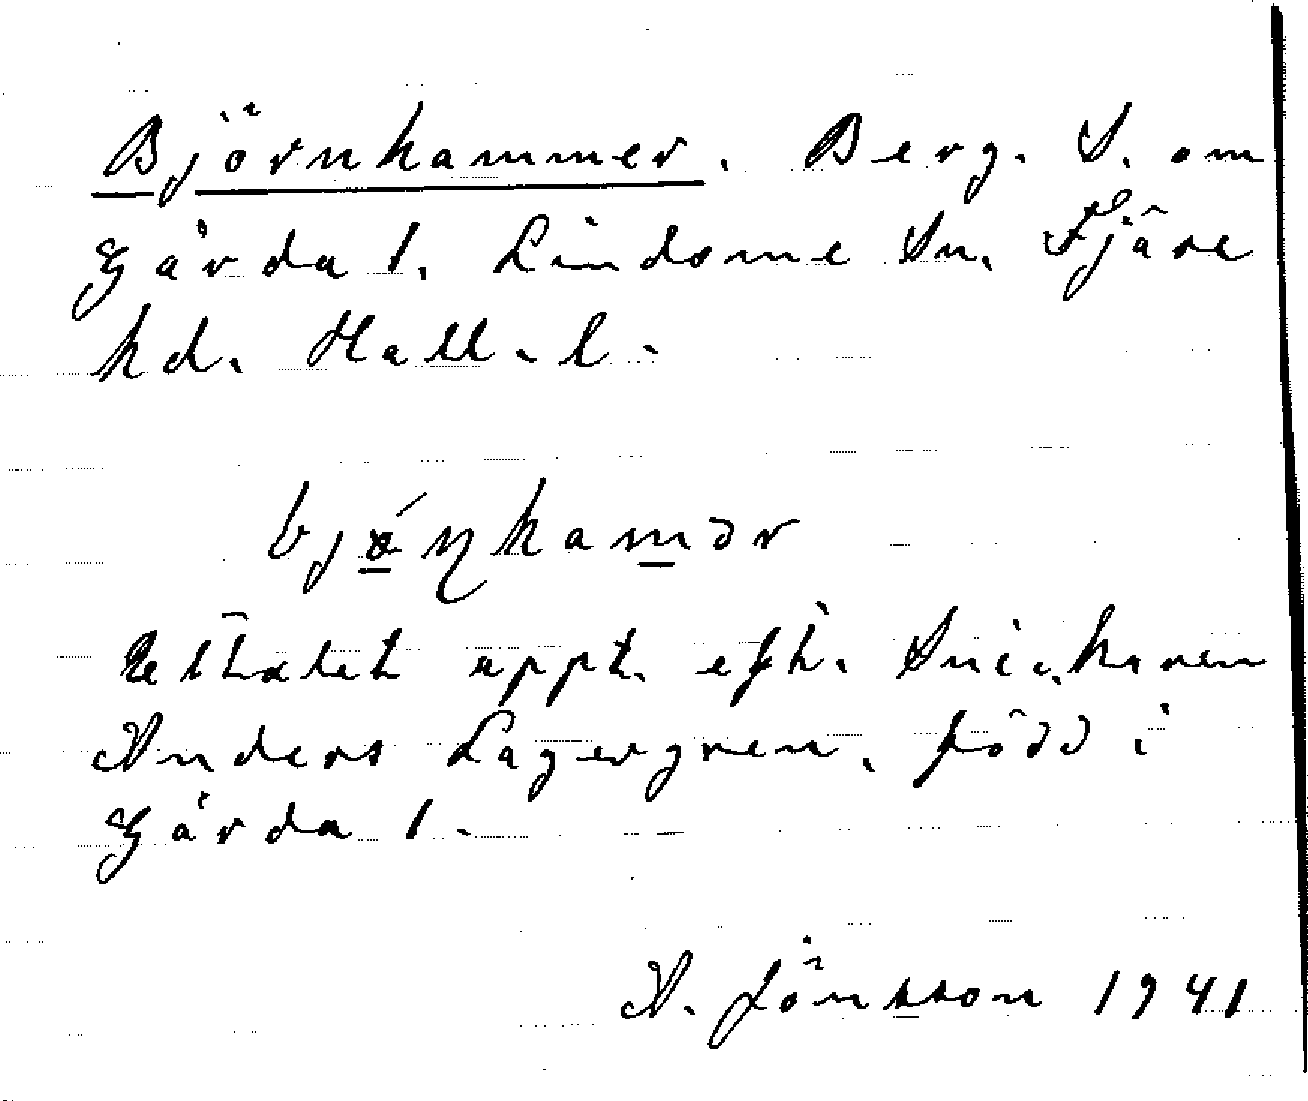 Björnhammer. Berg. S. om
Gårda 1. Lindome Sn. Fjäre
hd. Hall. l.
Uttalet uppt. eft. Snickaren
Anders Lagergren, född i
Gårda 1.
A. Jönsson 1941